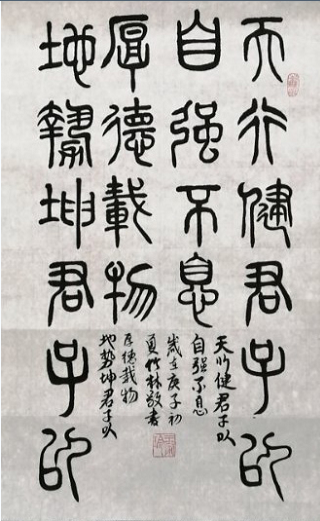 天行健君子以
自强不息
地勢坤君子以
厚德載物
天行健君子以
自强不息
地势坤君子以
厚德载物
歲在庚子初
夏竹林敬书